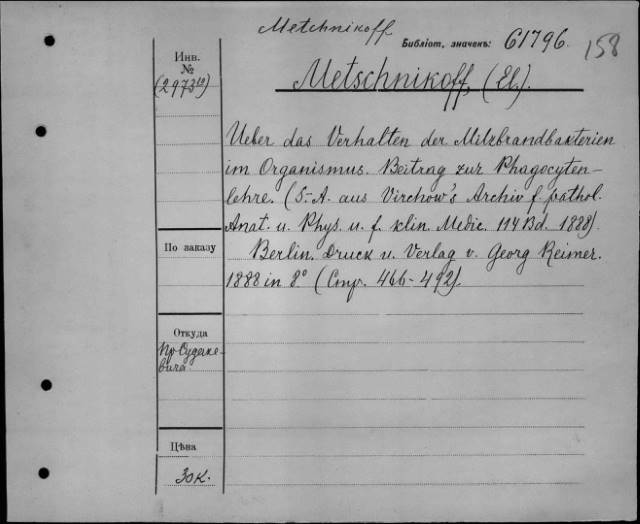 Metchnikoff
Библіот. значекъ: 61796.
158
Инв.
№
(29739)
Metschnikoff, (El.).
Ueber das Verhalten der Milzbrandbakterien
im Organismus. Beitrag zur Phagocyten-
lehre. (S.-A. aus Virchow's Archiv f. pathol.
Anat. u. Phys. u. f. klin. Medic. 114 Bd. 1888).
По заказу
Berlin. Druck u. Verlag v. Georg Reimer.
1888 in 8° (Стр. 466-492).
Откуда
Пр. Судаке-
вича
Цѣна
30к.